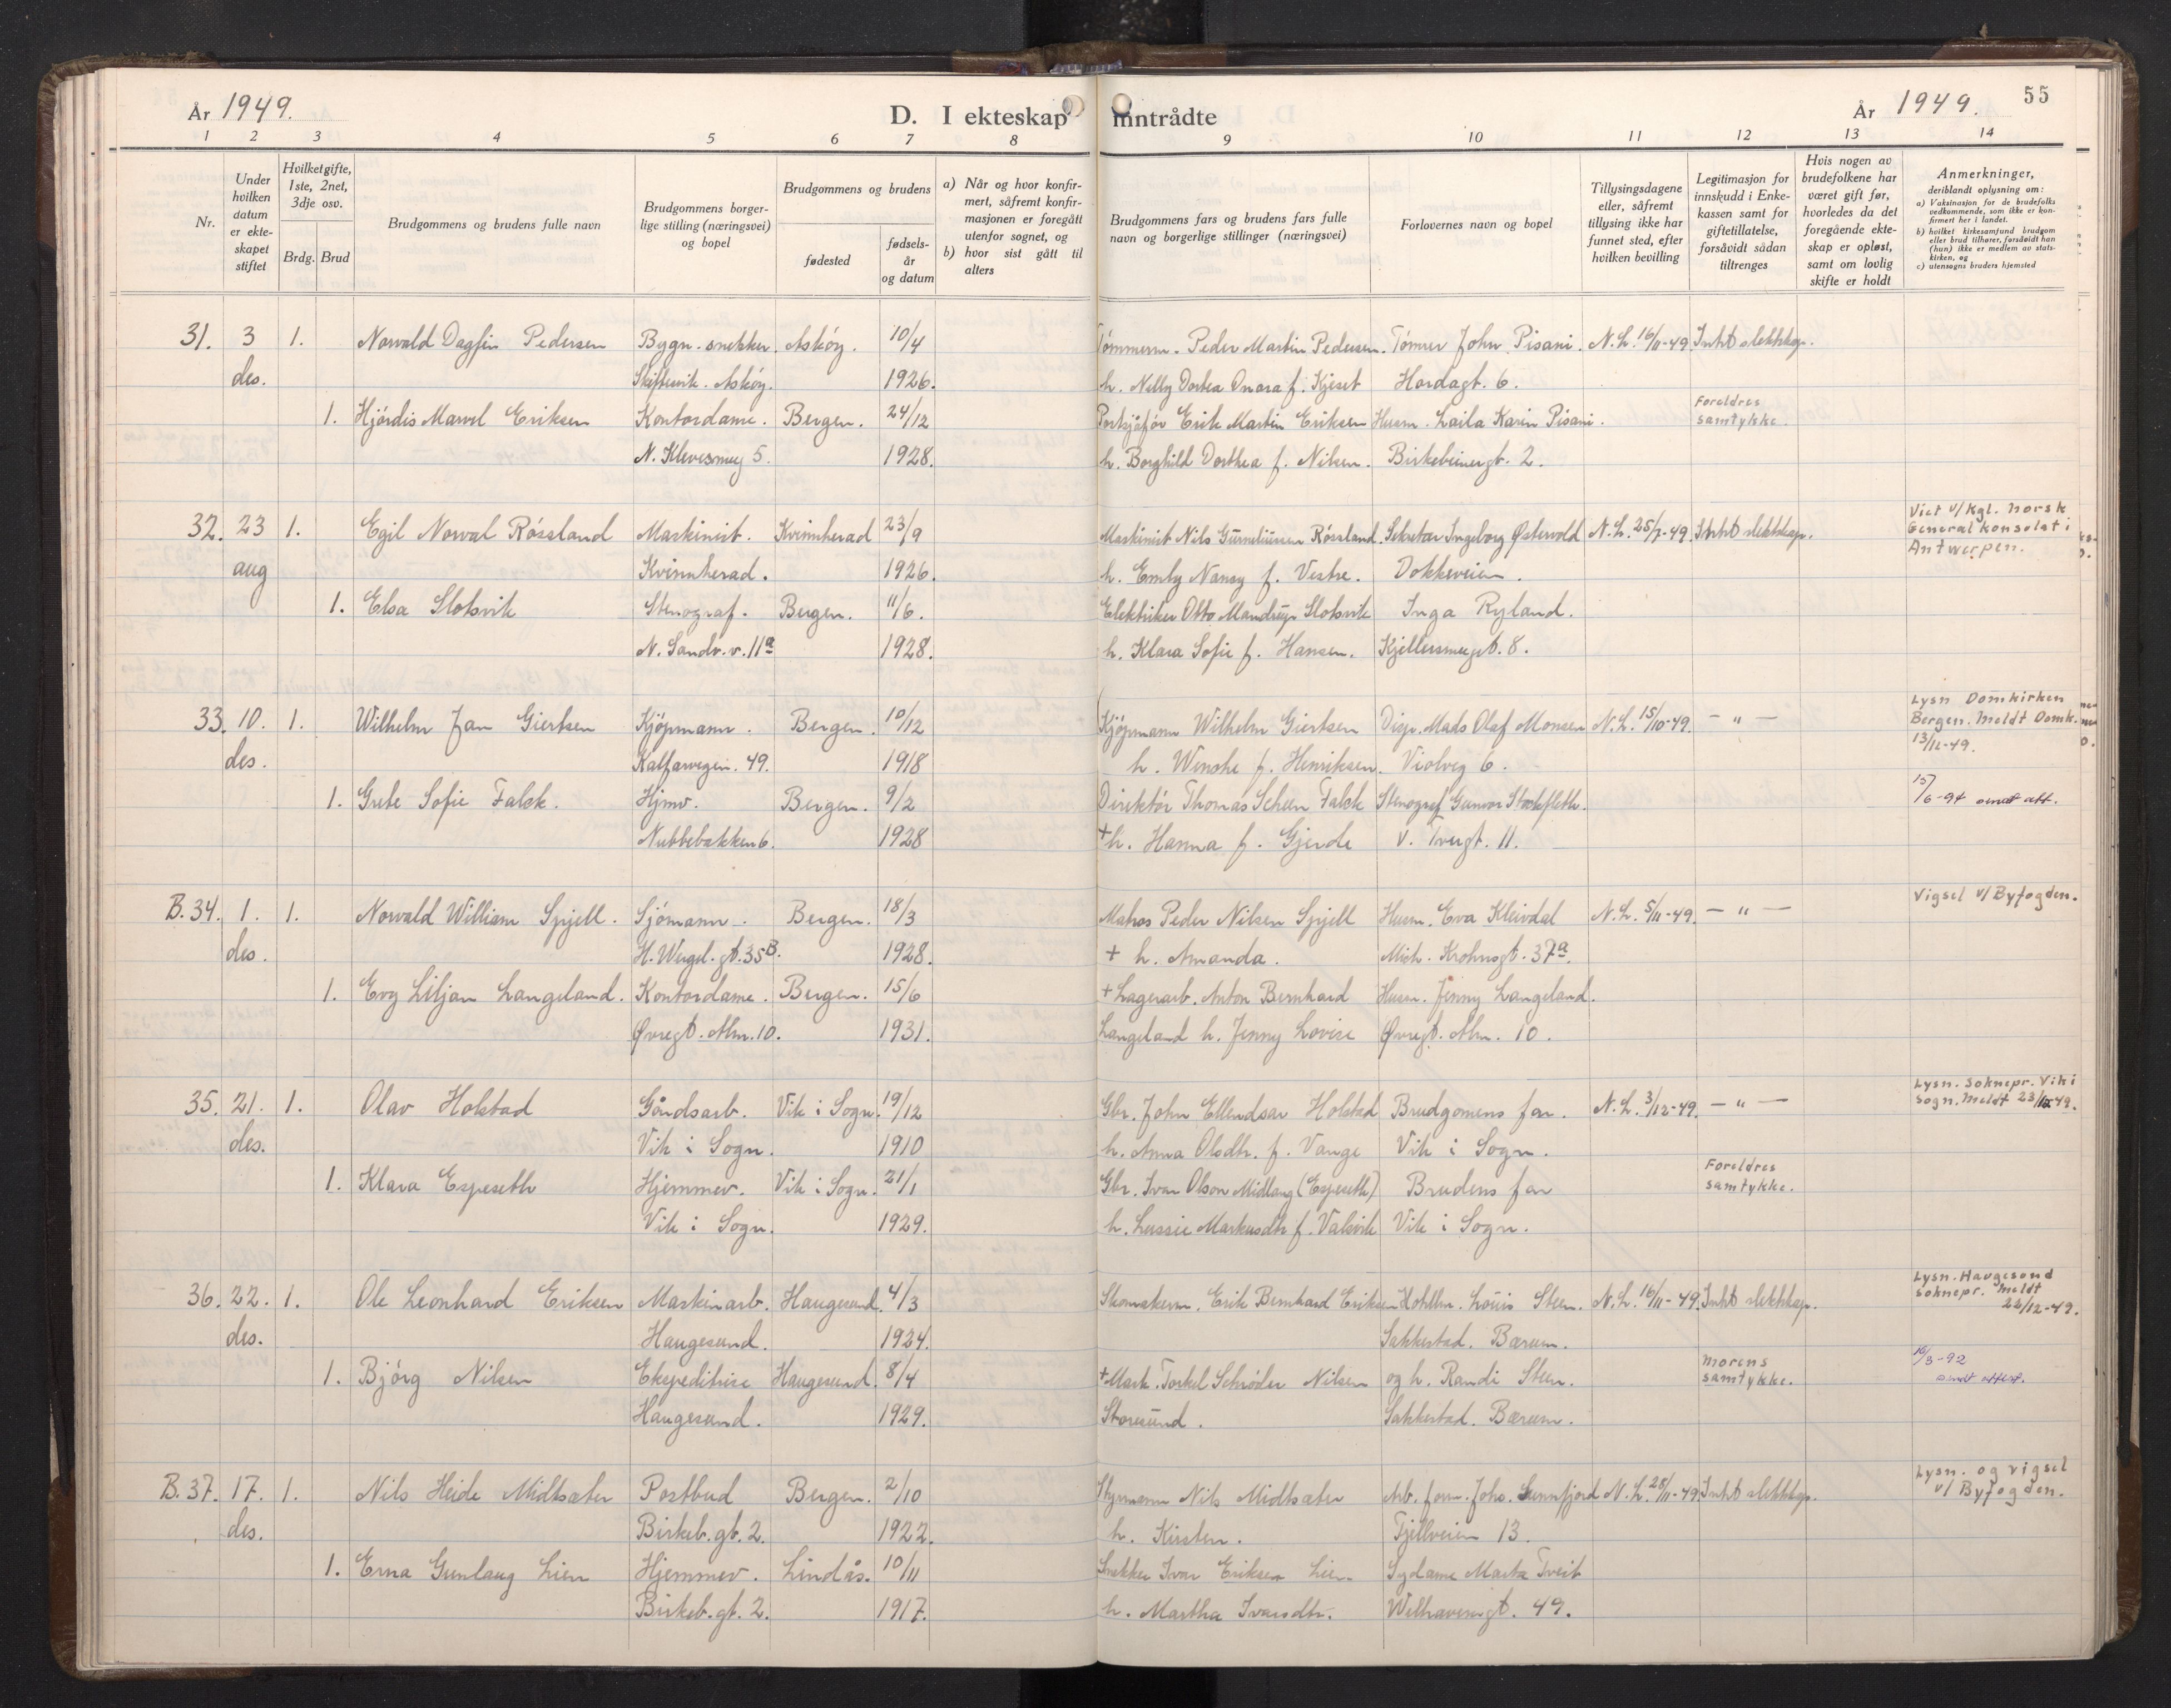 År 1949.
D. I ekteskap inntrådte
År 1949. 55
1 2 3 4 5 6 7 8 9 10 11 12 13 14
Nr.
Under hvilken datum er ekteskapet stiftet
Hvilket gifte, 1ste, 2net, 3dje osv.
Brdg. Brud
Brudgommens og brudens fulle navn
Brudgommens borgerlige stilling (næringsvei) og bopel
Brudgommens og brudens
fødested
fødselsår og datum
a) Når og hvor konfirmert, såfremt konfirmasjonen er foregått utenfor sognet, og
b) hvor sist gått til alters
Brudgommens fars og brudens fars fulle navn og borgerlige stillinger (næringsvei)
Forlovernes navn og bopel
Tillysingsdagene eller, såfremt tillysing ikke har funnet sted, efter hvilken bevilling
Legitimasjon for innskudd i Enkekassen samt for giftetillatelse, forsåvidt sådan tiltrenges
Hvis nogen av brudefolkene har været gift før, hvorledes da det foregående ekteskap er opløst, samt om lovlig skifte er holdt
Anmerkninger,
deriblandt oplysning om:
a) Vaksinasjon for de brudefolks vedkommende, som ikke er konfirmert her i landet.
b) hvilket kirkesamfund brudgom eller brud tilhører, forsåvidt han (hun) ikke er medlem av statskirken, og
c) utensogns bruders hjemsted
31. 3 1. Norvald Dagfin Pedersen Bygn. snekker. Askøy. 10/4 Tømmerm. Peder Martin Pedersen. Tømrer John Pisani. N.L. 16/11-49. Intet slektskap.
des. Skiftesvik. Askøy. 1926. h. Nelly Dortea Onara f. Kjeset Hordagt. 6.
1. Hjørdis Marvel Eriksen Kontordame. Bergen. 24/12 Erik Martin Eriksen Husm. Laila Karin Pisani. Foreldres samtykke.
N. Kleivesmug 5. 1928. h. Borghild Dorthea f. Nilsen. Birkebeinergt. 2.
32. 23 1. Egil Norval Røssland Maskinist. Kvinnherad 23/9 Maskinist Nils Røssland. Sekretær Ingeborg Østervold N.L. 25/7-49. Intet slektskap. Viet v/ Kgl. norsk Generalkonsulat i Antwerpen.
aug Kvinnherad. 1926. h. Emly Nancy f. Vestre. Dokkeveien.
1. Elsa Slotsvik Stenograf. Bergen. 11/6. Elektriker Otto Mandrup Slotsvik Inga Ryland.
N. Sandv.v. 11a 1928. h. Klara Sofie f. Hansen. Kjellersmugt. 8.
33. 10. 1. Wilhelm Jan Giertsen Kjøpmann. Bergen. 10/12 Kjøpmann Wilhelm Giertsen Disp. Mads Olaf Monsen N.L. 15/10-49. – " – Lysn Domkirken Bergen. Meldt Domk. 13/12-49.
des. Kalfarvegen. 49. 1918 h. Wenche f. Henriksen. Violveg 6.
1. Grete Sofie Falck. Hjmv. Bergen. 9/2 Direktør Thomas Scheen Falck Stenograf Gunvor Stockfleth. 15/6-94 sendt att.
Nubbebakken 6. 1928 + h. Hanna f. Gjerde V. Torvgt. 11.
B.34. 1. 1. Norvald William Spjell. Sjømann. Bergen. 18/3 Matros Peder Nilsen Spjell Husm. Eva Kleivdal N.L. 5/11-49. – " – Vigsel v/ Byfogden.
des. H. Wergel. gt. 35B. 1928. + h. Amanda. Mich. Krohnsgt. 37a.
1. Evy Liljan Langeland. Kontordame. Bergen. 15/6 + Lagerarb. Anton Bernhard Husm. Jenny Langeland.
Øvregt. Alm. 10. 1931. Langeland h. Jenny Lovise Øvregt. Alm. 10.
35. 21. 1. Olav Holstad Gårdsarb. Vik i Sogn. 19/12 Gbr. John Ellendsøn Holstad Brudgomens far. N.L. 3/12-49. – " – Lysn. Soknepr. Vik i Sogn. Meldt 23/12 49.
des. Vik i Sogn. 1910 h. Anna Olsdtr. f. Vange Vik i Sogn.
1. Klara Espeseth Hjemmev. Vik i Sogn. 21/1 Gbr. Ivar Olson Midlang (Espeseth) Brudens far Foreldres samtykke.
Vik i Sogn. 1929. h. Lussie Markusdtr f. Valsvik Vik i Sogn.
36. 22. 1. Ole Leonhard Eriksen Maskinarb. Haugesund. 4/3 Skomakerm. Erik Bernhard Eriksen Louis Steen. N.L. 16/11-49. Intet slektskap. Lysn. Haugesund Soknepr. Meldt 22/12-49.
des. Haugesund. 1924. Sakkestad. Bærum.
1. Bjørg Nilsen Ekspeditrise Haugesund. 8/4 + Mask. Torkel Schrøder Nilsen og h. Randi Steen. Morens samtykke. 16/3-92 sendt attest.
Haugesund. 1929. Storesund. Sakkestad. Bærum.
B.37. 17. 1. Nils Heide Midtsæter Postbud Bergen. 2/10 Styrmann Nils Midtsæter Arb. form. Johs. Sunnfjord N.L. 28/11-49. Intet slektskap. Lysn. og vigsel v/ Byfogden.
des. Birkeb. gt. 2. 1922. h. Kirsten. Fjellveien 13.
1. Erna Gunlaug Lien Hjemmev. Lindås. 10/11 Snekker Ivar Eriksen Lien. Sydame Marta Tveit
Birkeb. gt. 2. 1917. h. Martha Ivarsdtr. Welhavensgt. 49.